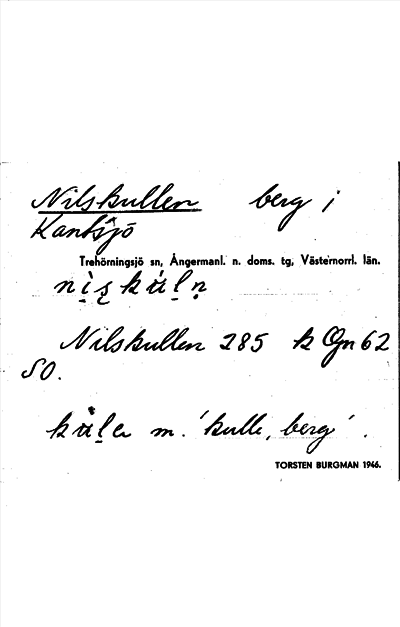 Nilskullen berg i
Kantsjö
Trehörningsjö sn, Ångermanl. n. doms. tg, Västernorrl. län.
Nilskullen 285 k Ogn 62
SO.
m. 'kulle, berg'.
TORSTEN BURGMAN 1946.